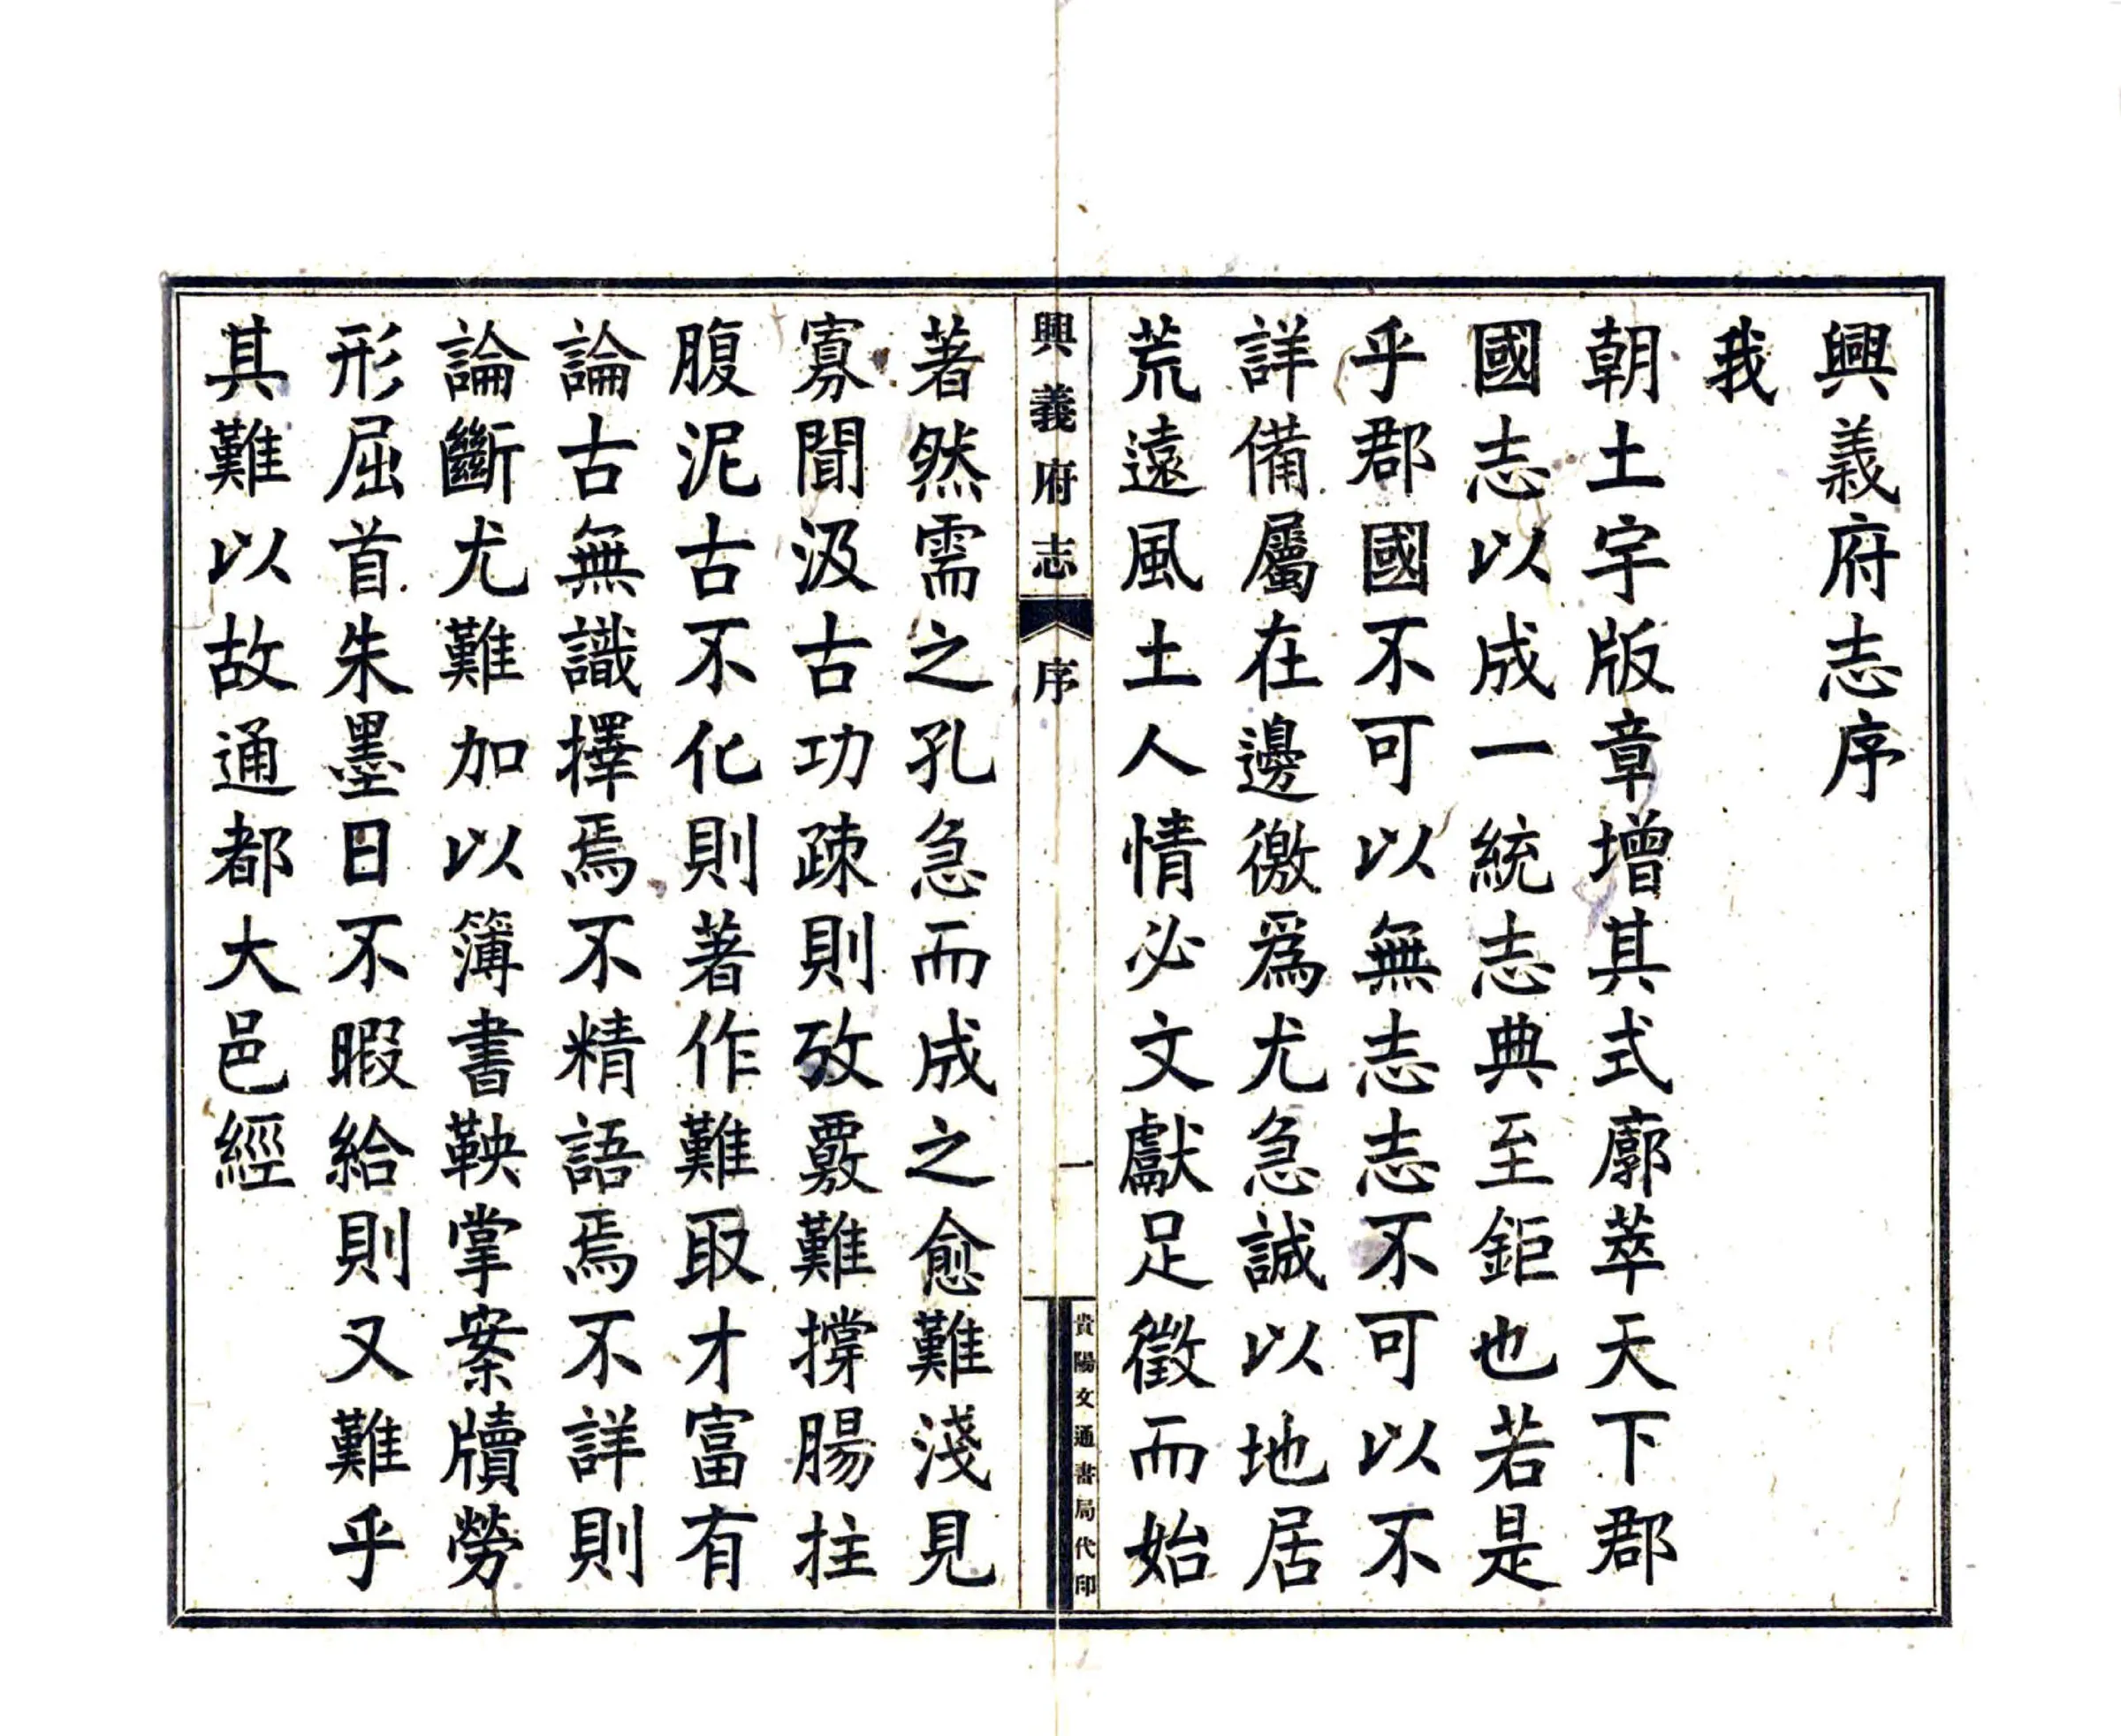 興義府志序
我
朝土宇版章增其式廓萃天下郡
國志以成一統志典至鉅也若是
乎郡國不可以無志志不可以不
詳備屬在邊徼爲尤急誠以地居
荒遠風土人情必文獻足徵而始
興義府志 序 一
貴陽文通書局代印
著然需之孔急而成之愈難淺見
寡聞汲古功疎則攷覈難撐腸拄
腹泥古不化則著作難取才富有
論古無識擇焉不精語焉不詳則
論斷尤難加以簿書鞅掌案牘勞
形屈首朱墨日不暇給則又難乎
其難以故通都大邑經